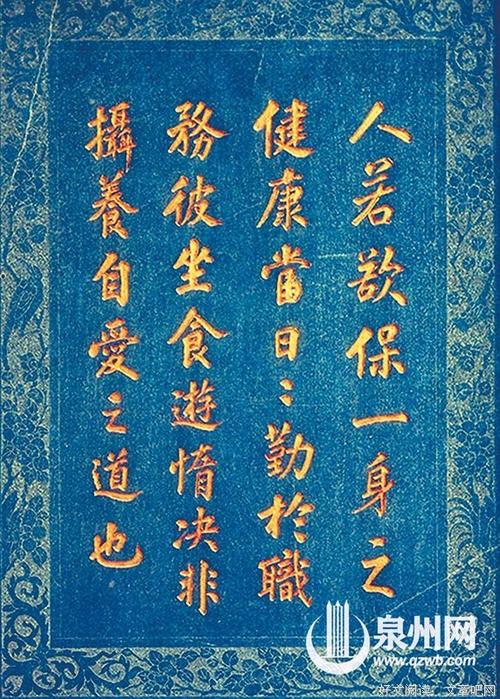 人若欲保一身之
健康當日〻勤於職
務彼坐食遊惰决非
攝養自愛之道也
泉州网
www.qzwb.com
好濟阅读：文章吧网